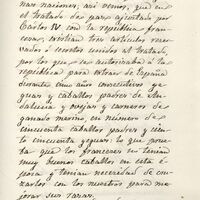 nas naciones; asi vemos, que en
el tratado de paz ajustado por
Carlos IV con la república fran-
cesa, existian tres articulos reser-
vados ó secretos unidos al tratado,
por los que se autorizaba á la
república para extraer de España
durante cinco años consecutivos ye-
guas y caballos padres de An-
dalucia y ovejas y carneros de
ganado merino, en número de
cincuenta caballos padres y cien-
to cincuenta yeguas; lo que prue-
ba que los franceses no tenian
muy buenos caballos en esta é-
poca y tenian necesidad de cru-
zarlos con los nuestros para me-
jorar sus razas.